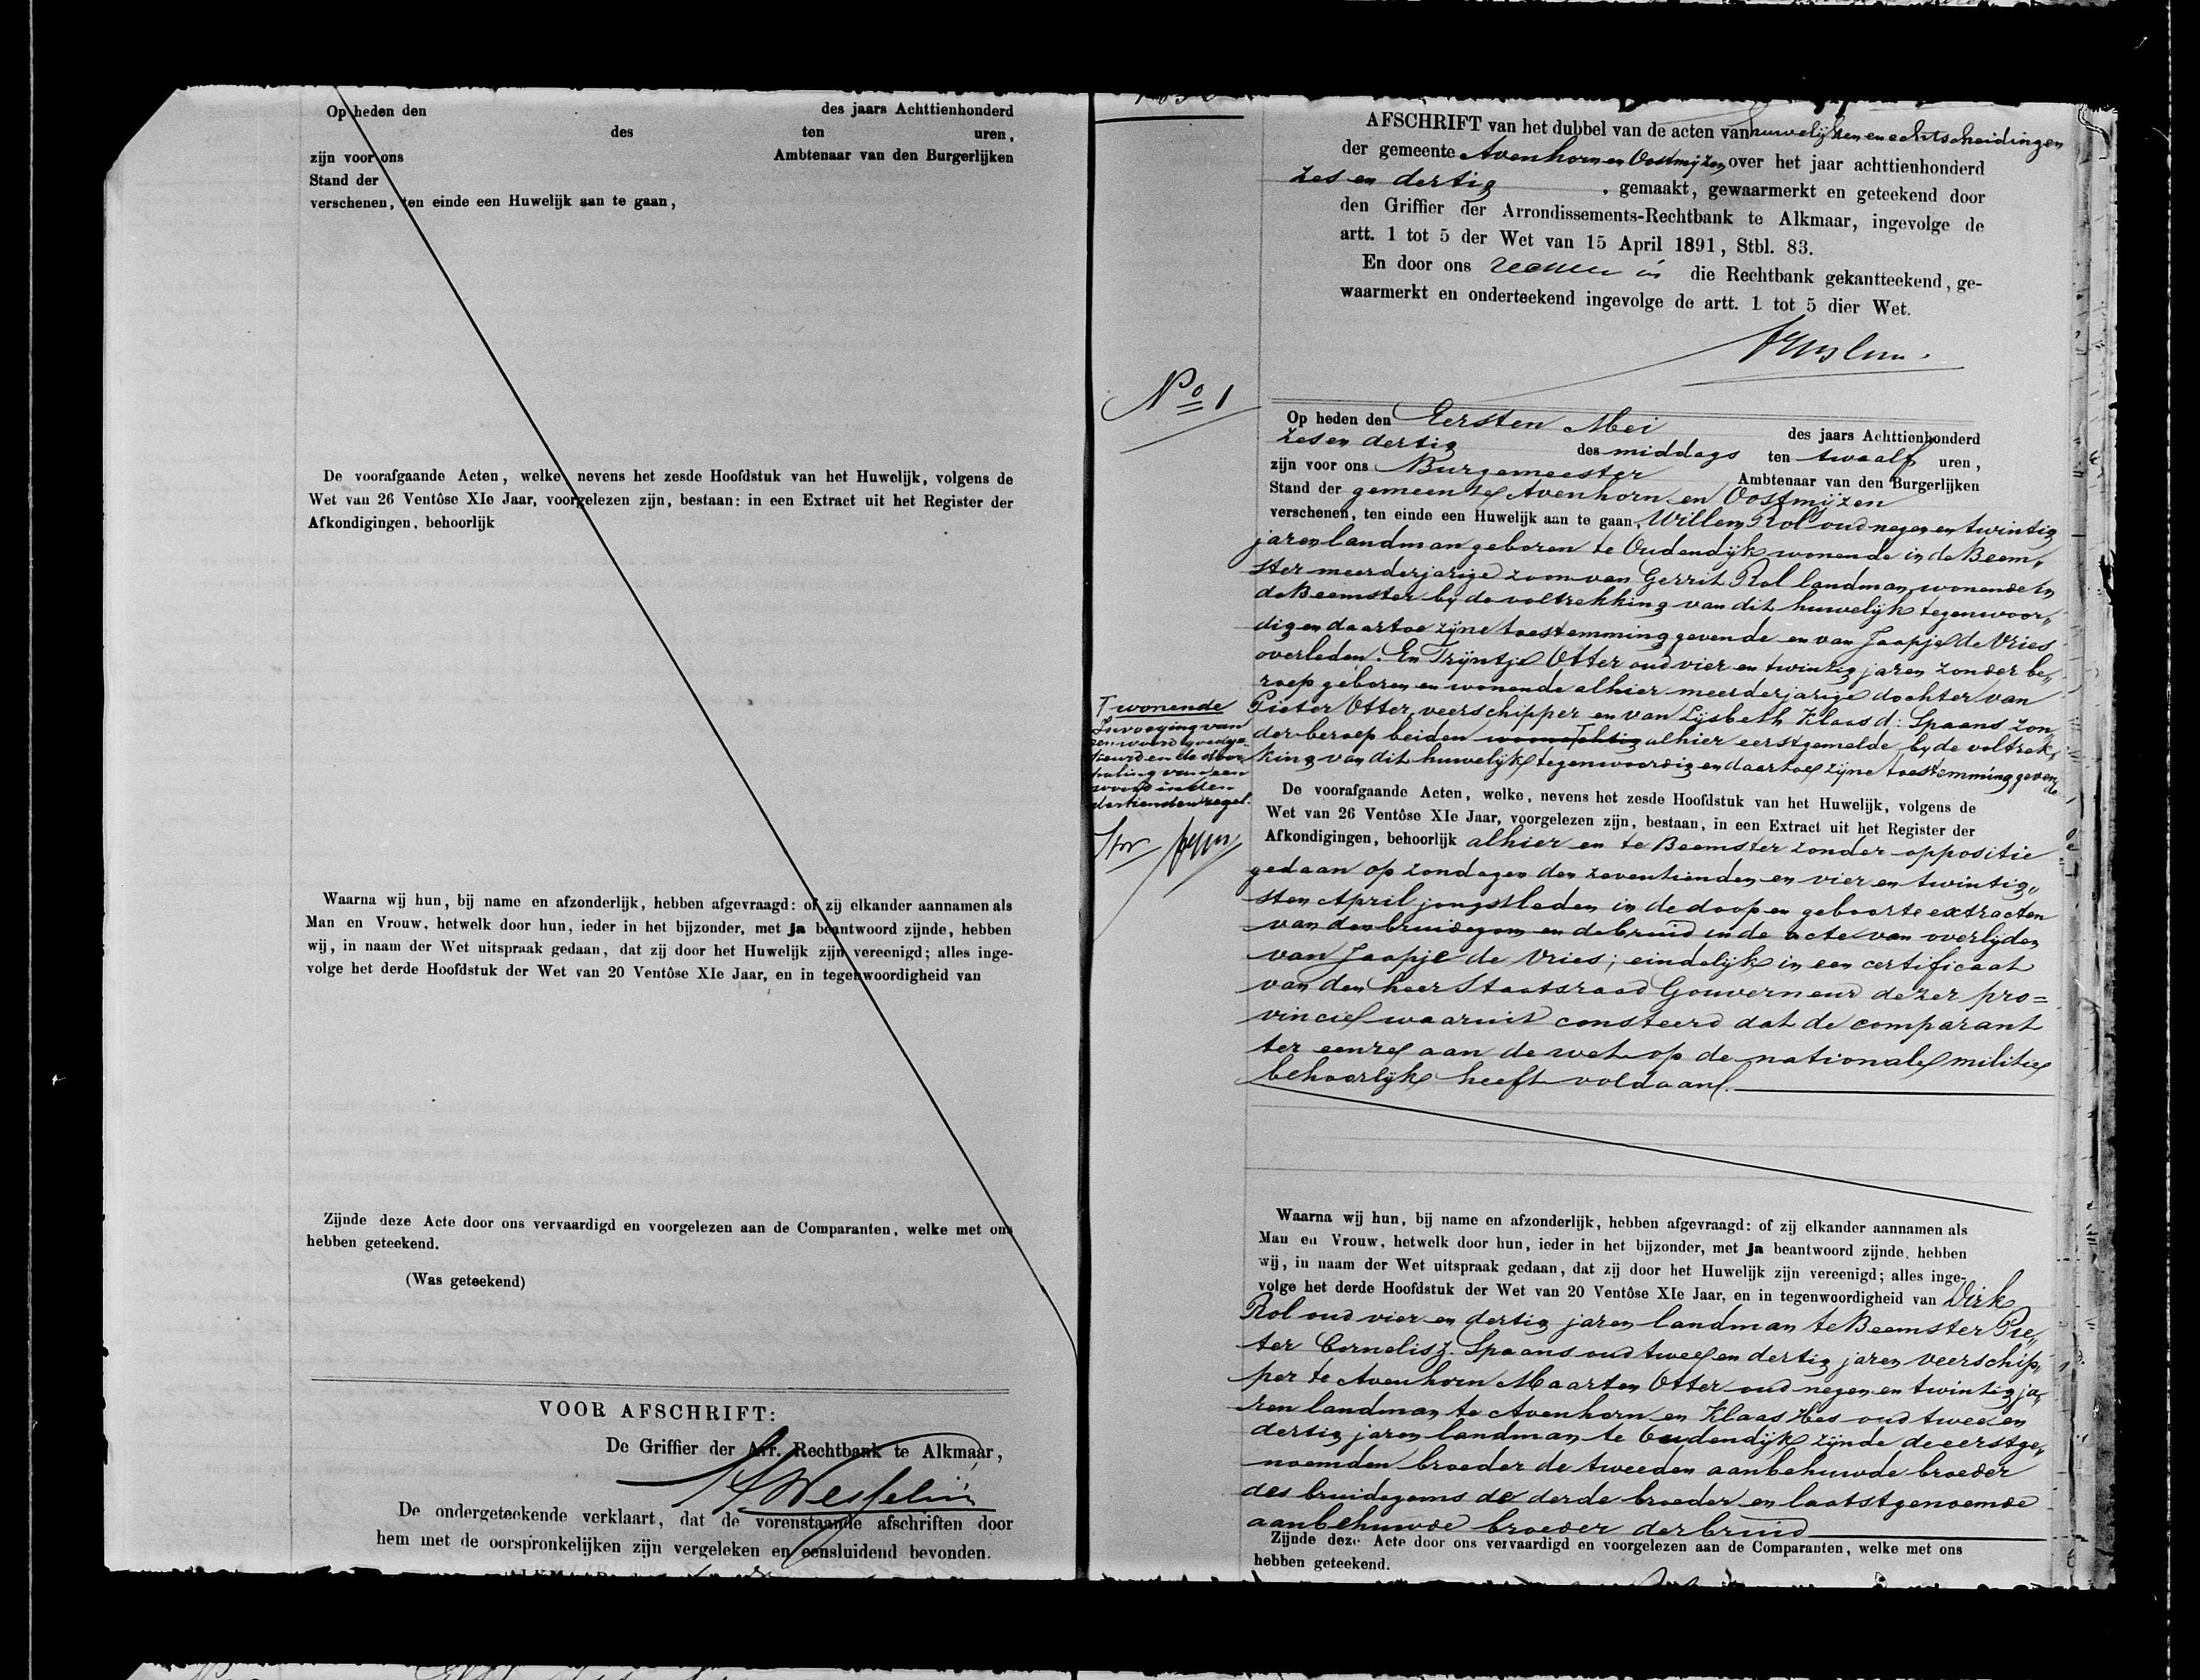 Op heden den des jaars Achttienhonderd
des ten uren,
zijn voor ons Ambtenaar van den Burgerlijken
Stand der
verschenen, ten einde een Huwelijk aan te gaan,
De voorafgaande Acten, welke nevens het zesde Hoofdstuk van het Huwelijk, volgens de
Wet van 26 Ventôse XIe Jaar, voorgelezen zijn, bestaan: in een Extract uit het Register der
Afkondigingen, behoorlijk
Waarna wij hun, bij name en afzonderlijk, hebben afgevraagd: of zij elkander aannamen als
Man en Vrouw, hetwelk door hun, ieder in het bijzonder, met ja beantwoord zijnde, hebben
wij, in naam der Wet uitspraak gedaan, dat zij door het Huwelijk zijn vereenigd; alles inge-
volge het derde Hoofdstuk der Wet van 20 Ventôse XIe Jaar, en in tegenwoordigheid van
Zijnde deze Acte door ons vervaardigd en voorgelezen aan de Comparanten, welke met ons
hebben geteekend.
(Was geteekend)
VOOR AFSCHRIFT:
De Griffier der Arr. Rechtbank te Alkmaar,
De ondergeteekende verklaart, dat de vorenstaande afschriften door
hem met de oorspronkelijken zijn vergeleken en eensluidend bevonden.
AFSCHRIFT van het dubbel van de acten van huwelijken en echtscheidingen
der gemeente Avenhorn en Oostmijzen over het jaar achttienhonderd
zes en dertig, gemaakt, gewaarmerkt en geteekend door
den Griffier der Arrondissements-Rechtbank te Alkmaar, ingevolge de
artt. 1 tot 5 der Wet van 15 April 1891, Stbl. 83.
En door ons in die Rechtbank gekantteekend, ge-
waarmerkt en onderteekend ingevolge de artt. 1 tot 5 dier Wet.
No 1
Op heden den Eersten Mei des jaars Achttienhonderd
zes en dertig des middags ten twaalf uren,
zijn voor ons Burgemeester Ambtenaar van den Burgerlijken
Stand der gemeente Avenhorn en Oostmijzen
verschenen, ten einde een Huwelijk aan te gaan, Willem Rol oud negen en twintig
jaren landman geboren te Oudendijk wonende in de Beem„
ster meerderjarige zoon van Gerrit Rol landman wonende in
de Beemster bij de voltrekking van dit huwelijk tegenwoor„
dig en daartoe zijne toestemming gevende en van Jaapje de Vries
overleden. En Trijntje Otter oud vier en twintig jaren zonder be„
roep geboren en wonende alhier meerderjarige dochter van
Pieter Otter veerschipper en van Lijsbeth Klaas d: Spaans zon„
der beroep beiden woonachtig alhier eerstgemelde bij de voltrek„
king van dit huwelijk tegenwoordig en daartoe zijne toestemming gevende
T wonende
Invoeging van
een woord goedge„
keurd en de door„
haling van een
woord in den
dertienden regel.
De voorafgaande Acten, welke, nevens het zesde Hoofdstuk van het Huwelijk, volgens de
Wet van 26 Ventôse XIe Jaar, voorgelezen zijn, bestaan, in een Extract uit het Register der
Afkondigingen, behoorlijk alhier en te Beemster zonder oppositie
gedaan op zondagen den zeventienden en vier en twintig„
sten April jongstleden in de doop en geboorte extracten
van den bruidegom en de bruid in de acte van overlijden
van Jaapje de Vries; eindelijk in een certificaat
van den heer Staatsraad Gouverneur dezer pro=
vincie waaruit consteerd dat de comparant
ter eenre aan de wet op de nationale militie
behoorlijk heeft voldaan.
Waarna wij hun, bij name en afzonderlijk, hebben afgevraagd: of zij elkander aannamen als
Man en Vrouw, hetwelk door hun, ieder in het bijzonder, met ja beantwoord zijnde, hebben
wij, in naam der Wet uitspraak gedaan, dat zij door het Huwelijk zijn vereenigd; alles inge-
volge het derde Hoofdstuk der Wet van 20 Ventôse XIe Jaar, en in tegenwoordigheid van Dirk
Rol oud vier en dertig jaren landman te Beemster Pie„
ter Cornelisz. Spaans oud twee en dertig jaren veerschip„
per te Avenhorn Maarten Otter oud negen en twintig ja„
ren landman te Avenhorn en Klaas Hes oud twee en
dertig jaren landman te Oudendijk zijnde de eerstge„
noemden broeder de tweeden aanbehuwde broeder
des bruidegoms de derde broeder en laatstgenoemde
aanbehuwde broeder der bruid
Zijnde deze Acte door ons vervaardigd en voorgelezen aan de Comparanten, welke met ons
hebben geteekend.